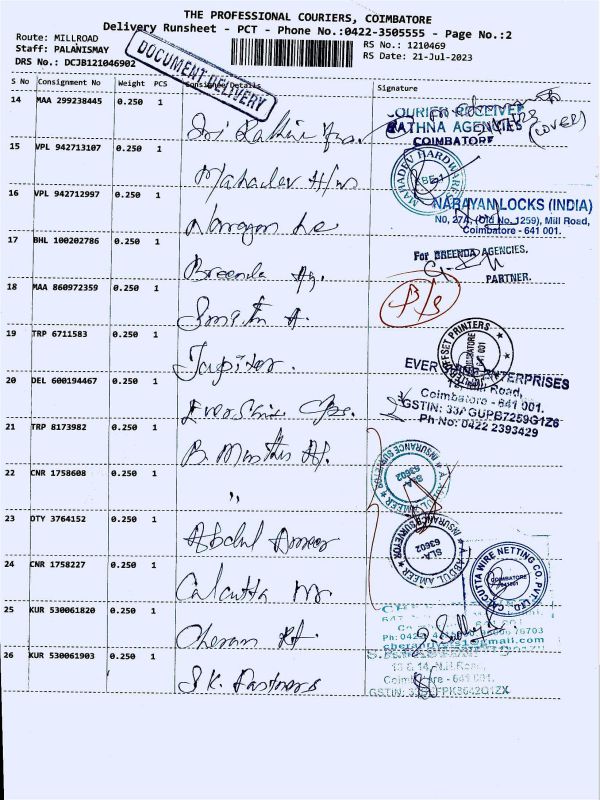 THE PROFESSIONAL COURIERS, COIMBATORE
Delivery Runsheet - PCT - Phone No.:0422-3505555 - Page No.:2
Route: MILLROAD
Staff: PALANISMAY
DRS No.: DCJB121046902
RS No.: 1210469
RS Date: 21-Jul-2023
DOCUMENT DELIVERY
S No Consignment No Weight PCS Consignee/Details Signature
14 MAA 299238445 0.250 1
COURIER RECEIVED
RATHNA AGENCIES
COIMBATORE
(COVER)
15 VPL 942713107 0.250 1 Mahadev H/w
MAHADEV HARDWARE
16 VPL 942712997 0.250 1
NARAYAN LOCKS (INDIA)
No, 27A, (Old No. 1259), Mill Road,
Coimbatore - 641 001.
17 BHL 100202786 0.250 1 Breenda Ag.
For BREENDA AGENCIES.
PARTNER.
18 MAA 860972359 0.250 1
19 TRP 6711583 0.250 1 Jupiter.
OFFSET PRINTERS
20 DEL 600194467 0.250 1
EVER SHINE ENTERPRISES
Road,
Coimbatore - 641 001.
GSTIN: 33AGUPB7259G1Z6
Ph No: 0422 2393429
21 TRP 8173982 0.250 1
22 CNR 1758608 0.250 1 "
A. ABDUL AMEER ★ INSURANCE SURVEYOR ★
SLA.
63602
23 OTY 3764152 0.250 1 Abdul Ameer
A. ABDUL AMEER ★ INSURANCE SURVEYOR ★
SLA.
63602
24 CNR 1758227 0.250 1 Calcutta
CALCUTTA WIRE NETTING CO. PVT. LTD.
COIMBATORE
641001
25 KUR 530061820 0.250 1 Cheran
26 KUR 530061903 0.250 1 S.K. Fasteners
13 & 14, Mill Road,
Coimbatore - 641 001.